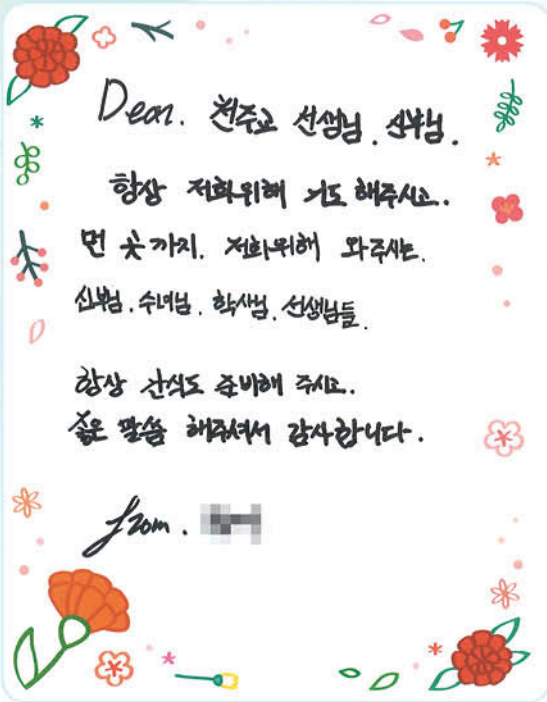 Dear. 천주교 선생님. 신부님.
항상 저희위해 기도 해주시고.
먼 곳 까지. 저희위해 와주시는.
신부님. 수녀님. 학사님. 선생님들.
항상 간식도 준비해 주시고.
좋은 말씀 해주셔서 감사합니다.
from.